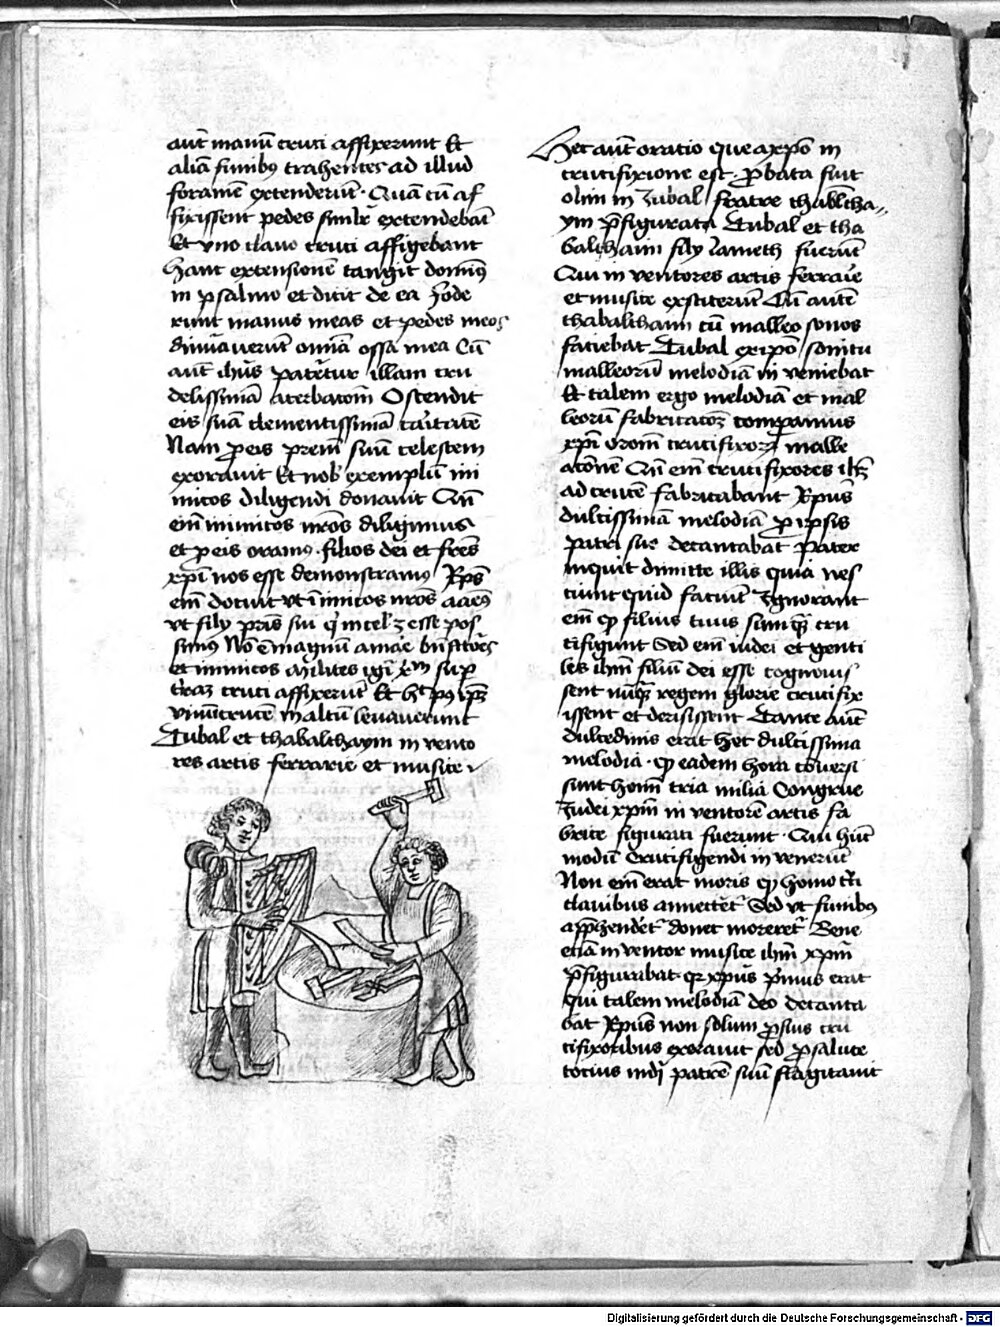 aut̄ manū cruci affixerunt Et
aliā funibꝰ trahentes ad illud
foramē extenderūt · Quā cū af
fixissent pedes simlr̄ extendebāt
Et vno clauo cruci affigebant
Hanc extensionē tangit domīꝰ
in psalmo et dicit de ea ffode
runt manus meas et pedes meos
dinūauerūt omīa ossa mea Cū
aut̄ ihūs patēter illam cru
delissimā acerbacōm Ostendit
eis suā clementissimā caritatē
Nam ꝓ eis prem̄ suū celestem
exorauit Et nob̄ exemplū ini
micos diligendi donauit Cū
em̄ inimicos nr̄os diligimus
et ꝓ eis oramꝰ · filios dei et fr̄es
xp̄i nos esse demonstramꝰ Xp̄s
em̄ docuit vt īimicos nr̄os amēꝰ
vt filij pr̄is sui q̄ in cel̄ ꝫ esse pos
simus Nō ē magnū amāe bn̄fctōr̄es
et inimicos Milites igī xp̄m suꝑ
t̄raꝫ cruci affixerūt Et h̄t pꝰ ip̄ꝫ
viuū cruce in altū leuauerunt
Tubal et thabalthaym in vento
res artis ferrarie et musice
Hec aut̄ oratio que a xp̄o in
crucifixione est · ꝓbata fuit
olim in Jubal fratre thabltha
ym p̄figurata Tubal et tha
balthaim filij lameth fuerūt
Qui in ventores artis ferrarie
et musice exstiterūt Cū autē
thabalthaim cū malleo sonos
faciebat Tubal ex ip̄o sonitu
malleorū melodiā in veniebat
Et talem ergo melodiā et mal
leorū fabricatōꝫ comparamus
xp̄i orōm crucifixoꝝ malle
atōnē Cū em̄ crucifixores ihm̄
ad crucē fabricabant Xp̄us
dulcissimā melodiā ꝓ ipsis
patri suo decantabat Pater
inquit dimitte illis quia nes
ciunt quid faciūt Ignorant
em̄ ꝙ filius tuus sum quē cru
cifigunt Sed em̄ iudei et genti
les ihm̄ filiū dei esse cognouis
sent nūqꝫ regem glorie crucifix
issent et derisissent Tante aut̄
dulcedinis erat hec dulcissima
melodia · ꝙ eadem hora cōuersi
sunt homī tria milia Congrue
Judei xp̄m in ventorē artis fa
brice figurati fuerunt · Qui hūc
modū Crucifigendi in venerūt
Non em̄ erat moris ꝙ homo cū
clauibus annectet̄ Sed vt funibꝰ
appēdet̄ donec moreret̄ Bene
etiā in ventor musice ihm̄ xp̄m
p̄figurabat qꝛ xp̄us p̄mus erat
qui talem melodiā deo decanta
bat Xp̄us non solum ꝓ suis cru
cifixoribus exorauit sed ꝓ salute
tocius mdi patrē suū flagitauit
Digitalisierung gefördert durch die Deutsche Forschungsgemeinschaft - DFG